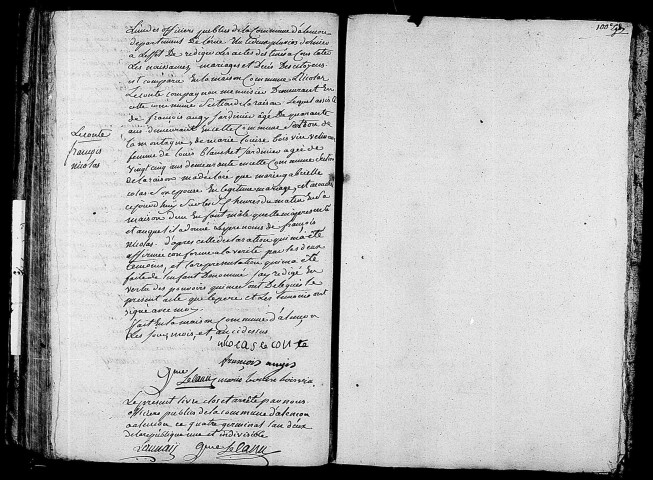 L'un des officiers publics de la Commune d'alencon
departement de l'orne
a l'effet De rediger Les actes destinés a Constater
Les naissances, mariages et Deces Des citoyens
est comparu En la maison Commune Nicolas
Leconte compagnon menuisier Demeurant En
cette commune Section de la raison Lequel assisté
de françois augy Jardinier âgé De quarante
ans demeurant En cette Commune Section de
la montagne, de marie Louise
femme de Louis Blanchet Jardinier agée de
vingt cinq ans demeurante en cette Commune Section
de la raison m'a declaré que marie gabrielle
son epouse En legitime mariage, est accouchée
cejourd'hui heures du matin En sa
maison D'un Enfant mâle quelle ma presenté
et auquel il a donné Le prenoms de françois
Nicolas. D'apres cette declaration qui m'a été
affirmée conforme a la verité par les deux
temoins, et la representation qui m'a été
faite de l'enfant Denommé J'ay redigé En
vertu des pouvoirs qui me sont Delegués Le
present acte que le pere et Les temoins ont
signé avec moy
fait En la maison Commune d'alençon
Les jour, mois, et an cidessus
Leconte
françois
nicolas
nicolas leconte
francois augis
marie
Le present livre clos et arrêté par nous
officiers publics de la commune d'alencon
ce quatre germinal l'an deux
de la republique une et indivisible
Launay